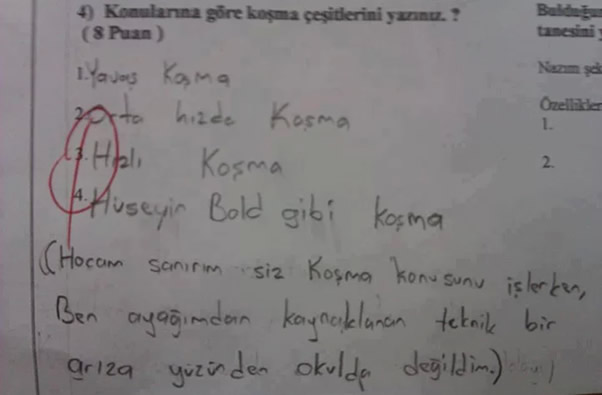 4) Konularına göre koşma çeşitlerini yazınız. ?
( 8 Puan )
1. Yavaş Koşma
2. Orta hızda Koşma
3. Hızlı Koşma
4. Hüseyin Bold gibi koşma
(Hocam sanırım siz Koşma konusunu işlerken,
Ben ayağımdan kaynaklanan teknik bir
arıza yüzünden okulda değildim.)
Bulduğun
tanesini y
Nazım şek
Özellikler
1.
2.